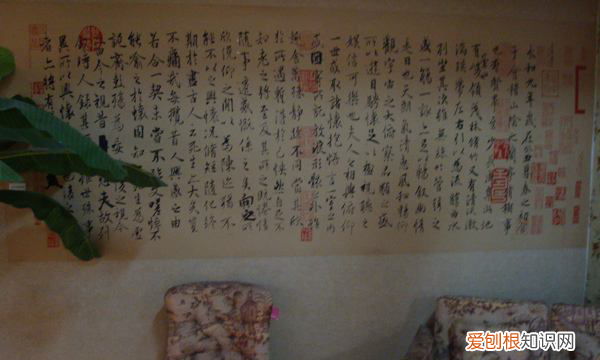 永和九年歲在癸丑暮春之初會
于會稽山陰之蘭亭脩稧事
也群賢畢至少長咸集此地
有崇山峻領茂林脩竹又有清流激
湍暎帶左右引以為流觴曲水
列坐其次雖無絲竹管弦之
盛一觴一詠亦足以暢敘幽情
是日也天朗氣清惠風和暢仰
觀宇宙之大俯察品類之盛
所以遊目騁懷足以極視聽之
娛信可樂也夫人之相與俯仰
一世或取諸懷抱悟言一室之內
或因寄所託放浪形骸之外雖
趣舍萬殊靜躁不同當其欣
於所遇蹔得於己怏然自足不
知老之將至及其所之既惓情
隨事遷感慨係之矣向之所
欣俛仰之間以為陳迹猶不
能不以之興懷況脩短隨化終
期於盡古人云死生亦大矣豈
不痛哉每攬昔人興感之由
若合一契未嘗不臨文嗟悼不
能喻之於懷固知一死生為虛
誕齊彭殤為妄作後之視今
今之視昔悲夫故列
時人錄其雖世殊事
異所以興懷後之
者亦將有
爱刨根知识网